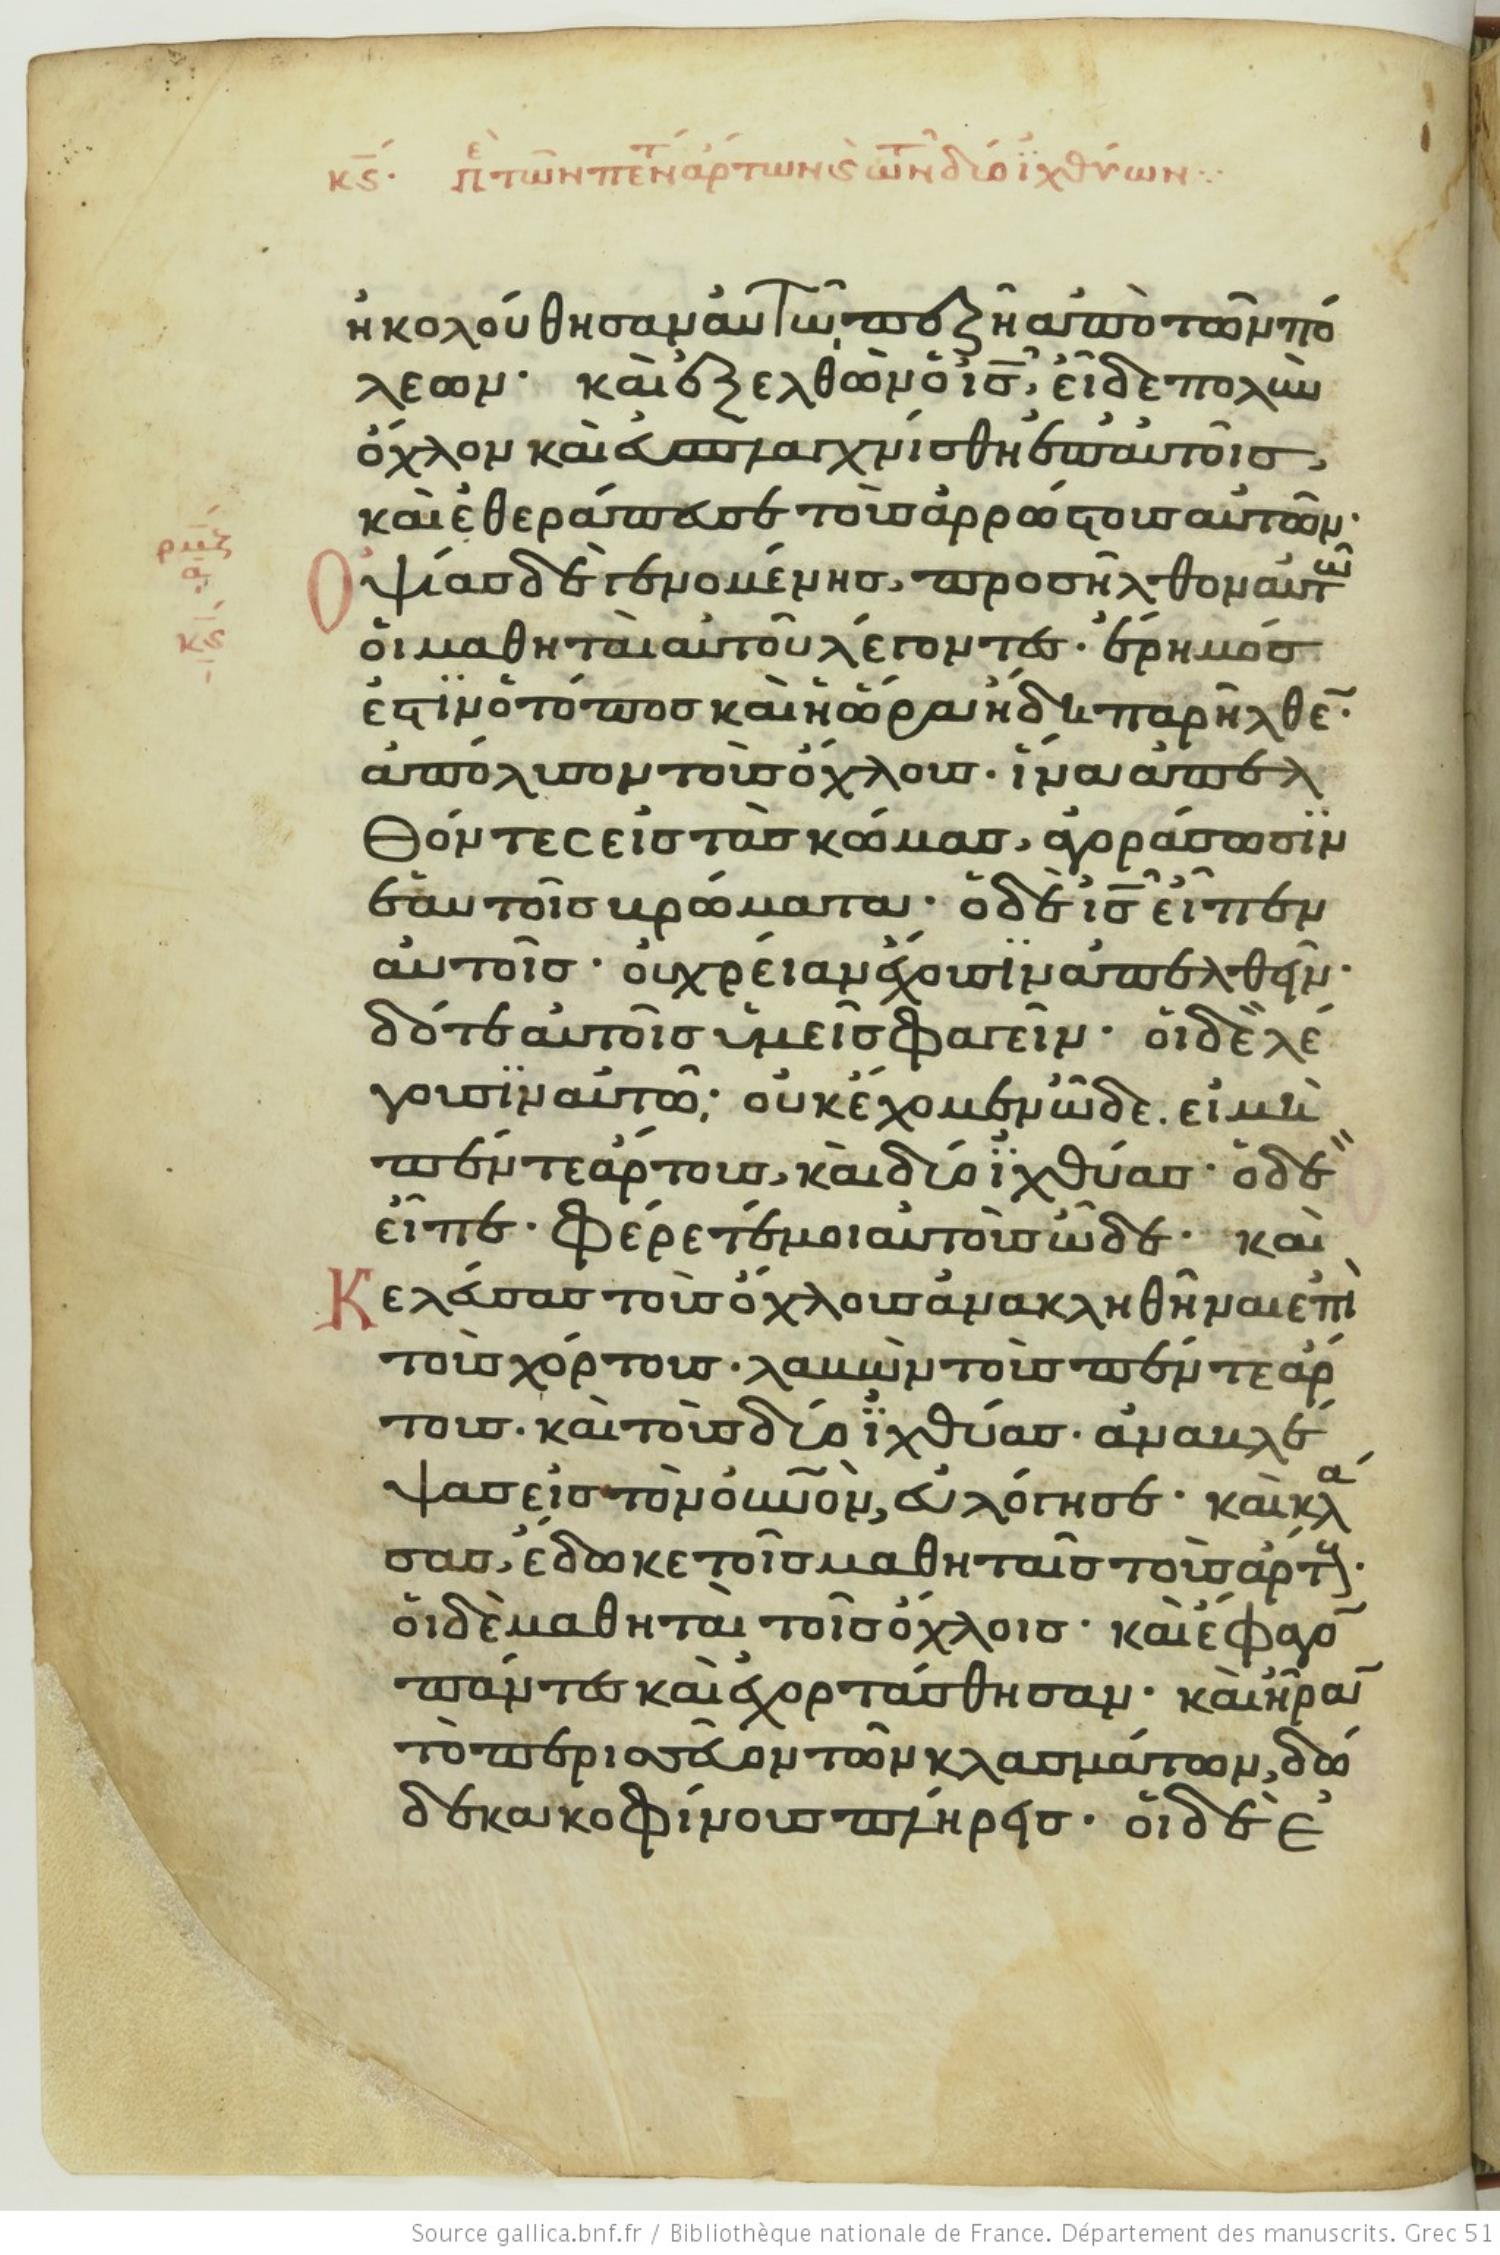 κϛ· πε τῶν πεντ ἄρτων ϗ τῶν δύο ἰχθύων
ἠκολούθησαν αὐτῶ πεζῆ ἀπὸ τῶν πό
λεων· καὶ ἐξελθὼν ὁ ις, εἶδε πολὺν
ὄχλον καὶ ἐσπλαγχνίσθη ἐπ αὐτοῖς,
καὶ ἐθεράπευσε τοὺς ἀρρώστους αὐτῶν·
ρμζ
α
κϛ
Ὀψίας δὲ γενομένης, προσῆλθον αὐτῶ
ὁι μαθηταὶ αὐτοῦ λέγοντες· ἔρημός
ἐστϊν ὁ τόπος καὶ ἡ ὥρα ἤδη παρῆλθε̄·
ἀπόλυσον τοὺς ὄχλους· ἵνα ἀπελ
θόντες εἰς τὰς κώμας, ἀγοράσωσϊν
ἑαυτοῖς βρώματα· ὁ δὲ ις εἶπεν
αὐτοῖς· οὐ χρείαν ἔχουσϊν ἀπελθεῖν·
δότε αὐτοῖς ὑμεῖς φαγεῖν· ὁι δὲ λέ
γουσϊν αὐτῶ· οὐκ ἔχομεν ὧδε. εἰ μὴ
πέντε ἄρτους, καὶ δύο ἰχθύας· ὁ δὲ
εἶπε· φέρετέ μοι αὐτοὺς ὧδε· καὶ
Κελεύσας τοὺς ὄχλους ἀνακληθῆναι ἐπὶ
τοὺς χόρτους· λαβὼν τοὺς πέντε ἄρ
τους· καὶ τοὺς δύο ἰχθύας· ἀναβλέ
ψας εἰς τὸν οὐνον, εὐλόγησε· καὶ κλά
σας, ἔδωκε τοῖς μαθηταῖς τοὺς ἄρτους·
ὁι δὲ μαθηταὶ τοῖς ὄχλοις· καὶ ἔφαγο̄
πάντες καὶ ἐχορτάσθησαν· καὶ ἦρᾱ
τὸ περισσεῦον τῶν κλασμάτων, δώ
δεκα κοφίνους πλήρεις· ὁι δὲ ἐ
Source gallica.bnf.fr / Bibliothèque nationale de France. Département des manuscrits. Grec 51